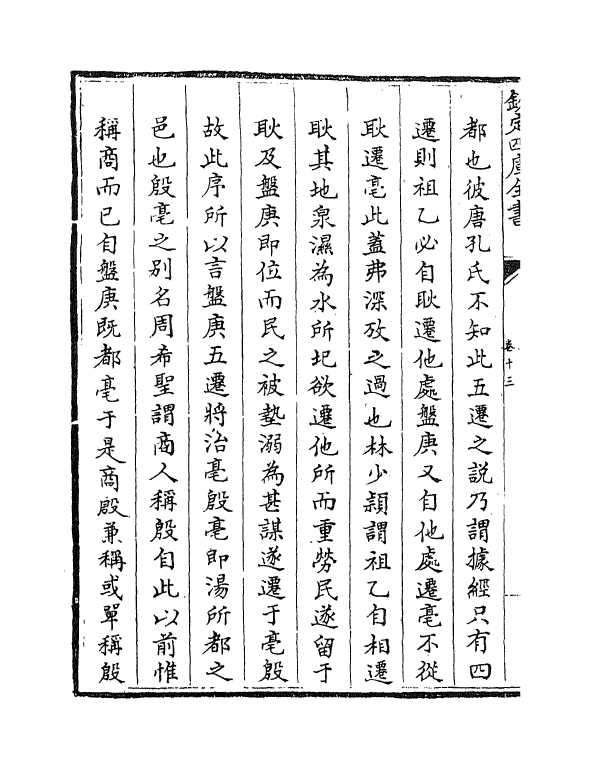 欽定四庫全書
卷十三
都也彼唐孔氏不知此五遷之說乃謂據經只有四
遷則祖乙必自耿遷他處盤庚又自他處遷亳不從
耿遷亳此蓋弗深攷之過也林少頴謂祖乙自相遷
耿其地泉濕為水所圮欲遷他所而重勞民遂留于
耿及盤庚即位而民之被墊溺為甚謀遂遷于亳殷
故此序所以言盤庚五遷將治亳殷亳即湯所都之
邑也殷亳之别名周希聖謂商人稱殷自此以前惟
稱商而已自盤庚既都亳于是商殷兼稱或單稱殷